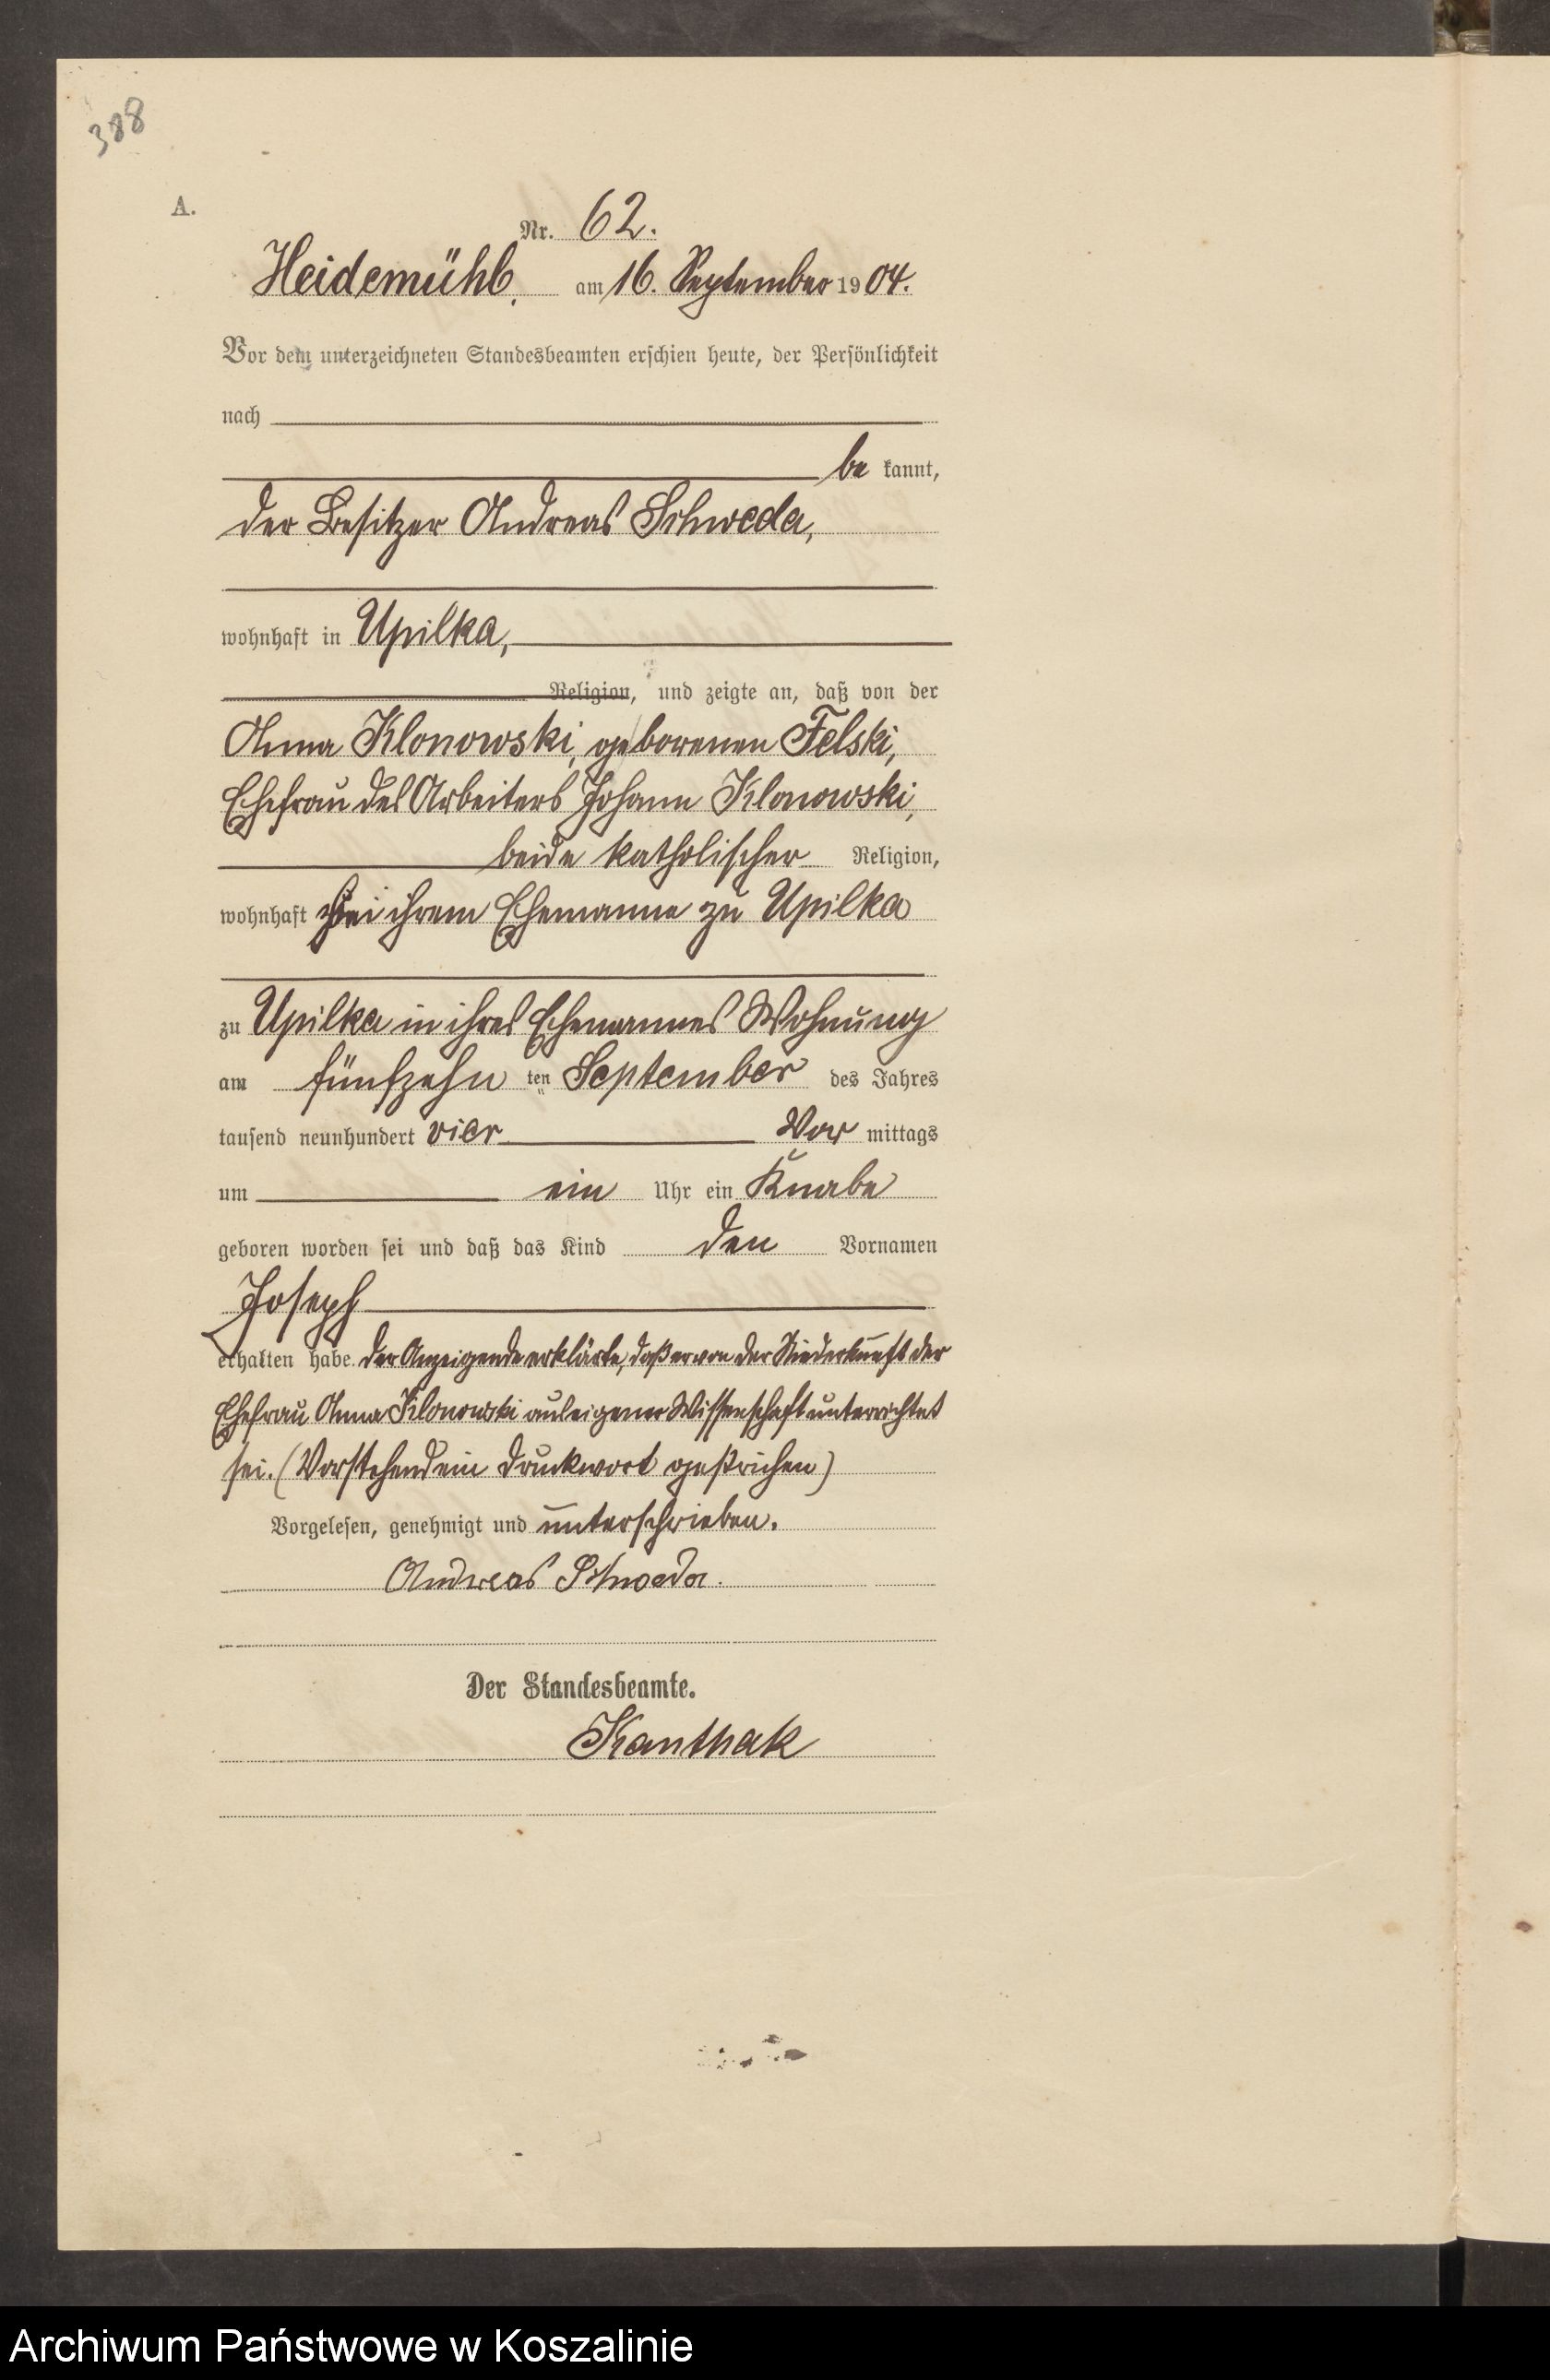 388
A.
Nr. 62.
Heidemühl, am 16. September 1904.
Vor dem unterzeichneten Standesbeamten erschien heute, der Persönlichkeit
nach
be kannt,
der Besitzer Andreas Schweda,
wohnhaft in Upilka,
Religion, und zeigte an, daß von der
Anna Klonowski, geborenen Felski,
Ehefrau des Arbeiters Johann Klonowski,
beide katholischer Religion,
wohnhaft bei ihrem Ehemanne zu Upilka
zu Upilka in ihres Ehemannes Wohnung
am fünfzehn ten September des Jahres
tausend neunhundert vier Vor mittags
um ein Uhr ein Knabe
geboren worden sei und daß das Kind den Vornamen
Joseph
erhalten habe. Der Anzeigende erklärte, daß er von der Niederkunft der
Ehefrau Anna Klonowski aus eigener Wissenschaft unterrichtet
sei. (Vorstehend ein Druckwort gestrichen)
Vorgelesen, genehmigt und unterschrieben.
Andreas Schweda.
Der Standesbeamte.
Kanthak
Archiwum Państwowe w Koszalinie